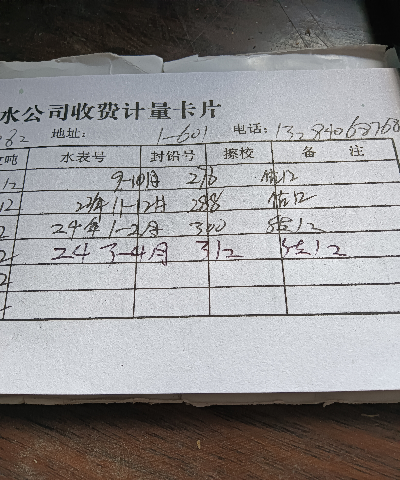 水公司收费计量卡片
82 地址: 1-601 电话: 13284062768
吨 水表号 封铅号 擦校 备 注
12 9-10月 276 估12
12 23年11-12月 288 估12
2 24年1-2月 300 估12
2 24 3-4月 312 估12
2